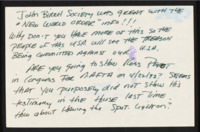 JOHN BIRCH SOCIETY WAS GREAT WITH THE
"NEW WORLD ORDER" INFO!!!
WHY DON'T YOU HAVE MORE OF THIS SO THE
PEOPLE OF THIS USA WILL SEE THE TREASON
BEING COMMITTED AGAINST OUR U.S.A.
ARE YOU GOING TO SHOW ROSS PEROT
IN CONGRESS FOR NAFTA ON SEEMS
THAT YOU PURPOSELY DID NOT SHOW HIS
TESTIMONY IN THE HOUSE LAST TIME
HOW ABOUT HAVING THE SPOTLIGHT